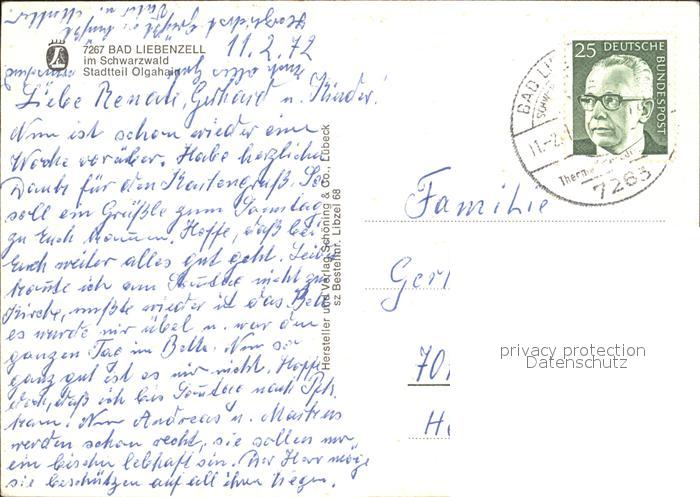 7267 BAD LIEBENZELL
im Schwarzwald
Stadtteil Olgahain
11.2.72
Liebe Renate, Gerhard u. Kinder!
Nun ist schon wieder eine
Woche vorüber. Habe herzlichen
Dank für den Kartengruß. So
soll ein Grüßle zum Samstag
zu Euch kommen. Hoffe, daß bei
Euch weiter alles gut geht. Leider
konnte ich am Sonntag nicht zur
Kirche, mußte wieder ist das Bett
es wurde mir übel u. war den
ganzen Tag im Bette. Nun so
ganz gut ist es mir nicht. Hoffe
doch, daß ich bis Sonntag nach
kann! Nun Andreas u. Martins
werden schon recht, sie sollen nur
ein bischen lebhaft sein. Der Herr möge
sie beschützen auf all ihren Wegen.
Hersteller und Verlag Schöning & Co., Lübeck
sz Bestellnr. Libzel 68
25 DEUTSCHE
BUNDESPOST
BAD LI
11.-2.
7263
Familie
Ger
70
H
privacy protection
Datenschutz